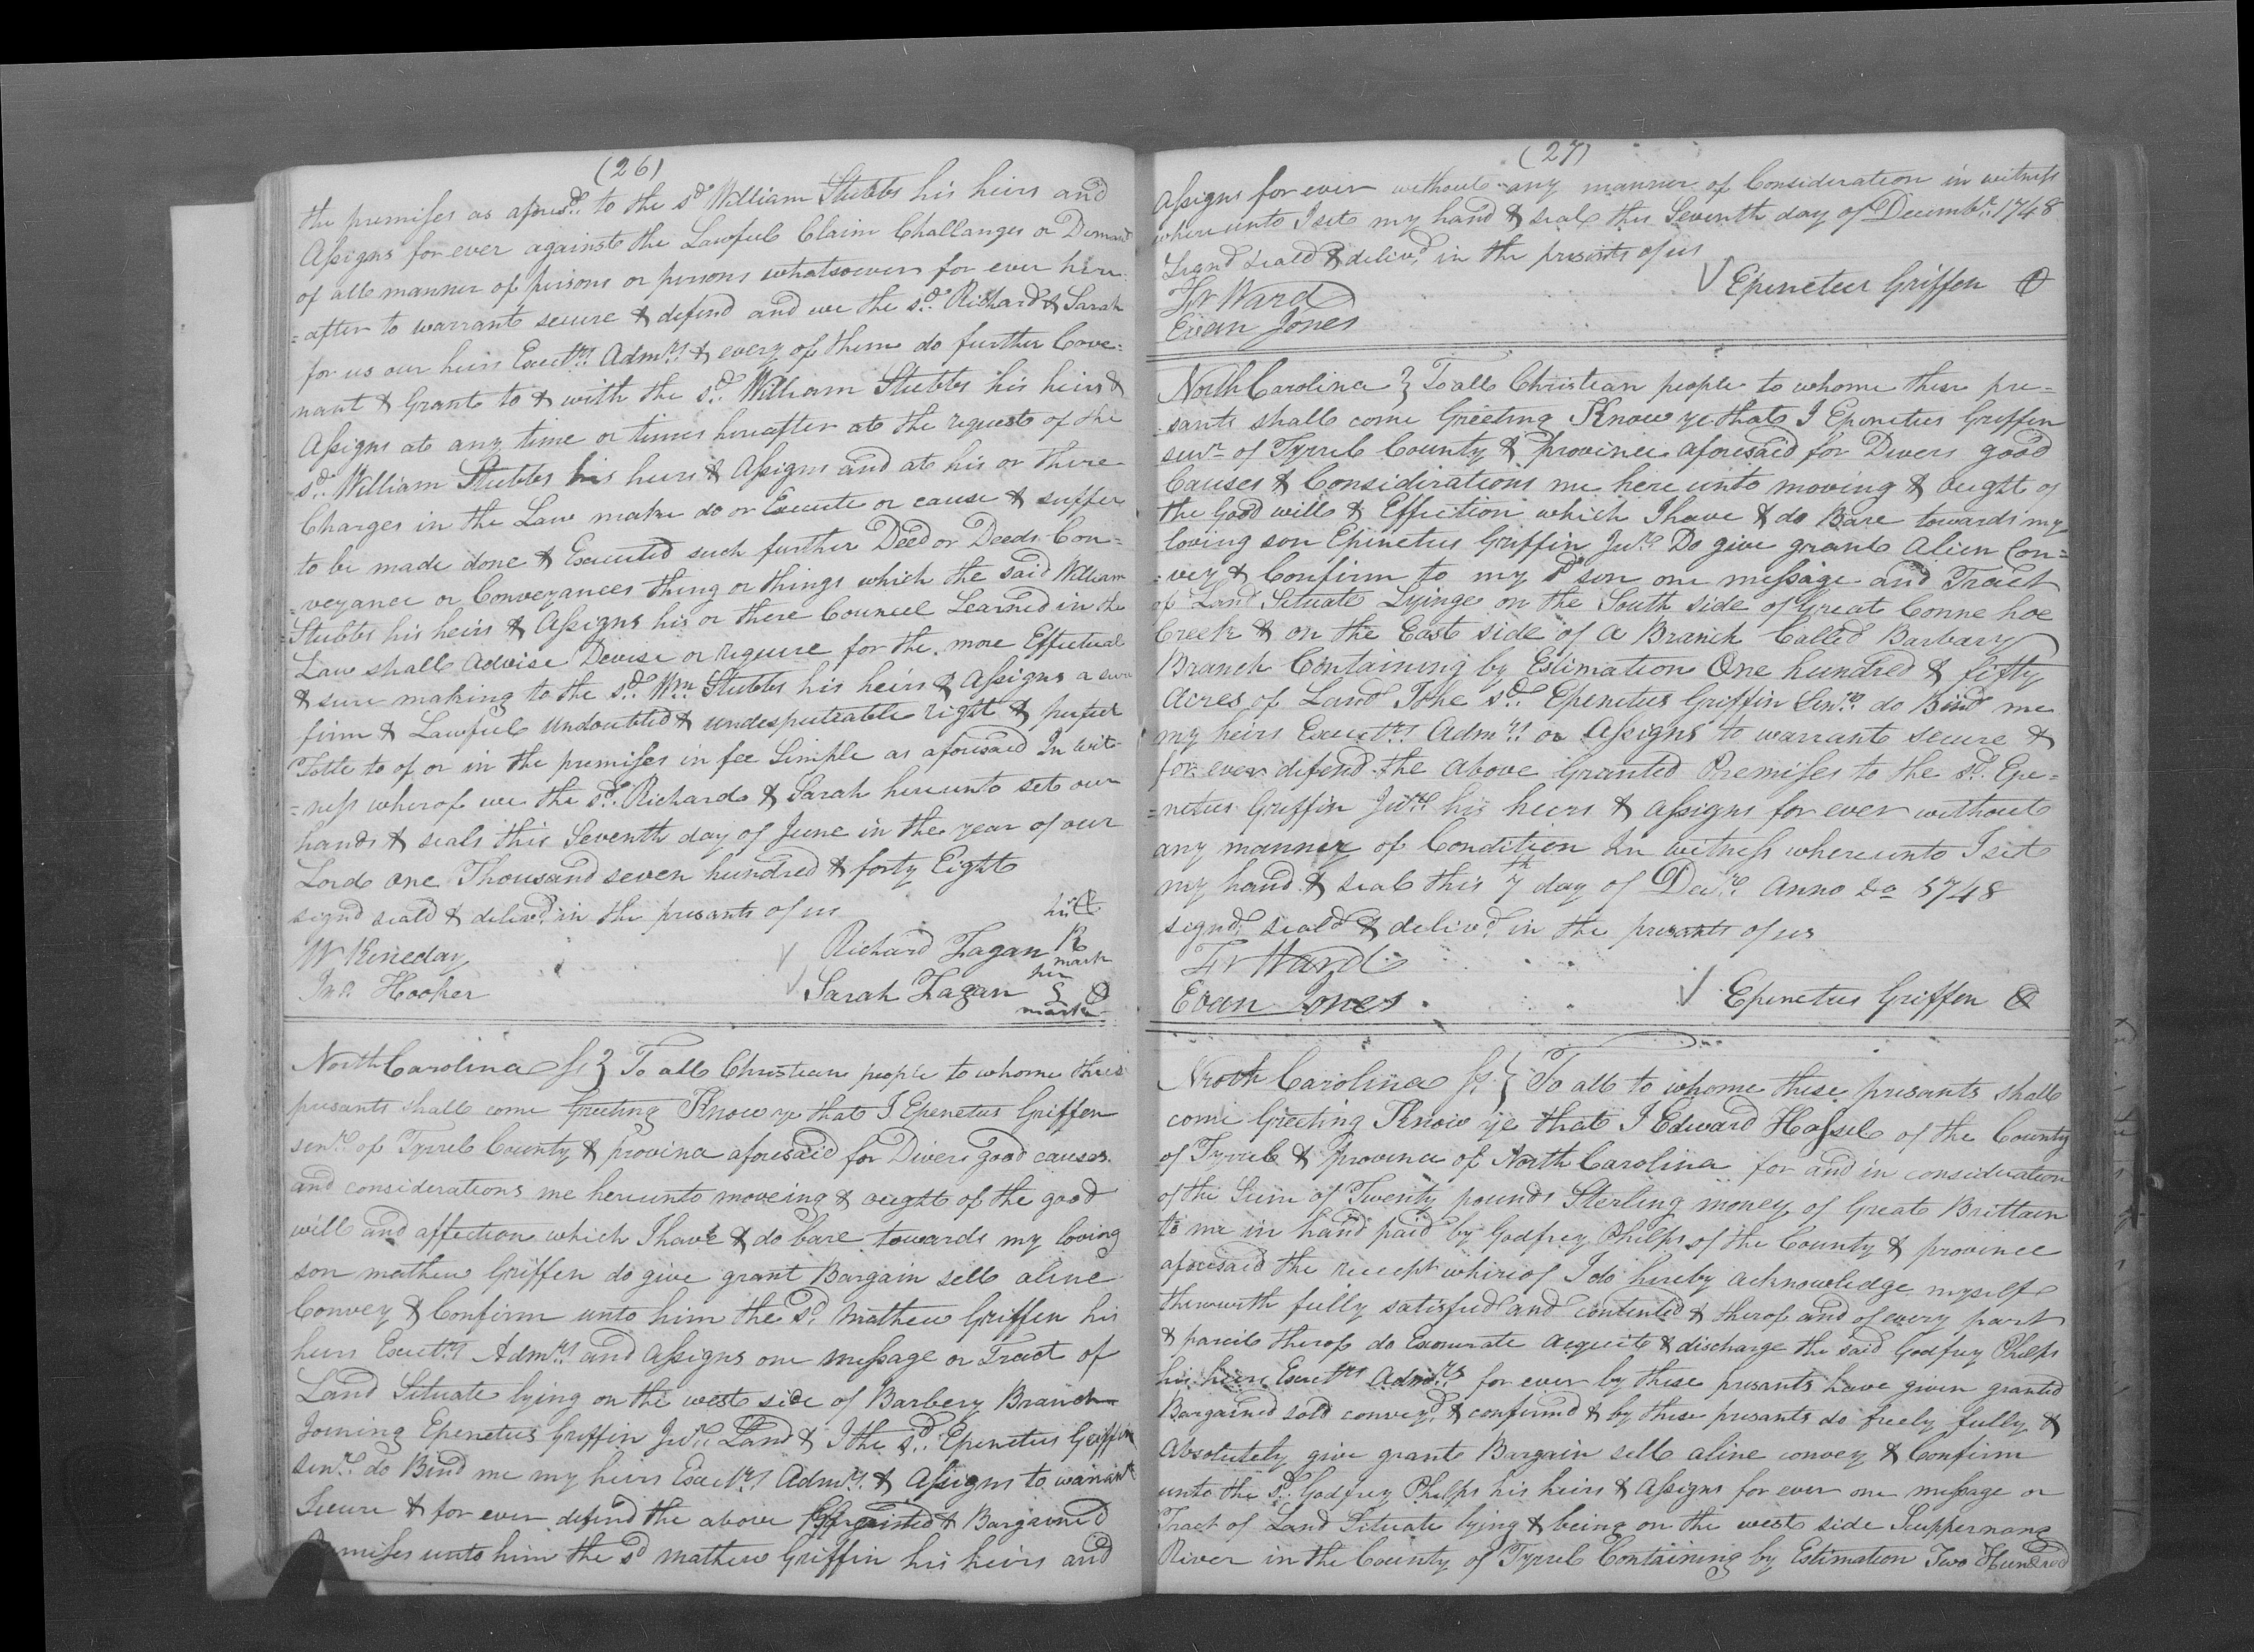 (26)
the premises as afores.d to the s.d William Stubbs his heirs and
Assigns for ever against the Lawfull Claim Challanges or Demand
of all manner of persons or persons whatsoever for ever here
=after to warrant secure & defend and we the s.d Richard & Sarah
for us our heirs Exect.rs Adm.rs & every of them do further Cove=
nant & Grant to & with the s.d William Stubbs his heirs &
Assigns at any time or times hereafter at the request of the
s.d William Stubbs his heirs & Assigns and at his or there
Charges in the Law make do or Execute or cause & suffer
to be made done & Executed such further Deed or Deeds Con=
=veyance or Conveyances thing or things which the said William
Stubbs his heirs & Assigns his or there Councel Learned in the
Law shall advise Devise or require for the more Effectual
& sure making to the s.d Wm Stubbs his heirs & Assigns a sure
firm & Lawfull undoubted & undesputeable right & perfect
Totle to of or in the premises in fee Simple as aforesaid In wit=
=ness wherof we the s.d Richard & Sarah hereunto set our
hands & seals this Seventh day of June in the year of our
Lord One Thousand seven hundred & forty Eight
signd seald & deliv.d in the presants of us
his
W Keneday Richard Fagan R
mark
Jno. Hooker her
Sarah Fagan S
mark
North Carolina ss } To all Christian people to whome these
presants shall come Greeting Know ye that I Epenetus Griffen
sen.r of Tyrrel County & provinc aforesaid for Divers good causes
and considerations me hereunto moveing & ought of the good
will and affection which I have & do bare towards my loving
son mathew Griffen do give grant Bargain sell aline
Convey & Confirm unto him the s.d Mathew Griffen his
heirs Exect.rs Adm.rs and Assigns one message or Tract of
Land Situate lying on the west side of Barbery Branch
Joining Epenetus Griffin Jun.r Land & I the s.d Epenetus Griffin
sen.r do Bind me my heirs Exect.rs Adm.rs & Assigns to warrant
Secure & for ever defend the above & Bargained
premises unto him the sd mathew Griffin his heirs and
(27)
Assigns for ever without any manner of Consideration in witness
whereunto I set my hand & seal this Seventh day of Decemb.r 1748
Signd seald & deliv.d in the presents of us
Fr Ward Epeneteus Griffen
Evan Jones
North Carolina } To all Christian people to whome these pre=
sants shall come Greeting Know ye that I Epenetus Griffen
sen.r of Tyrrel County & province aforesaid for Divers good
Causes & Considirations me here unto moving & ought of
the Good will & Effection which I have & do Bare towards my
loving son Epenetus Griffin Jun.r Do give grant Alien Con=
=vey & Confirm to my sd son one message and Tract
of Land Situate Lyinge on the South side of Great Conne hoe
Creek & on the East side of a Branch Called Barbary
Branch Containing by Estimation One hundred & fifty
acres of Land I the s.d Epenetus Griffin Sen.r do Bind me
my heirs Exect.rs Adm.rs or Assigns to warrant secure &
for ever defend the above Granted Premises to the s.d Epe=
=netus Griffin Jun.r his heirs & Assigns for ever without
any manner of Condition In witness whereunto I set
my hand & seal this 7th day of Dec.r Anno Do 1748
signd. seald & deliv.d in the presants of us
Fr Ward
Evan Jones Epenetus Griffen
North Carolina ss. } To all to whome these presants shall
come Greeting Know ye that I Edward Hassel of the County
of Tyrrel & provence of North Carolina for and in consideration
of the Sum of Twenty pounds Sterling money of Great Brittain
to me in hand paid by Godfrey Phelps of the County & province
aforesaid the receept whereof I do hereby acknowledge myself
therewith fully satisfied and contented & therof and of every part
& parcile therof do Exonerate acquit & discharge the said Godfrey Phelps
his heirs Exect.rs Adm.rs for ever by these presants have given granted
Bargained sold convey.d & confirmd & by these presants do freely fully &
Absolutely give grant Bargain sell aline convey & Confirm
unto the s.d Godfrey Phelps his heirs & Assigns for ever one message or
Tract of Land Situate lying & being on the west side Scuppernong
River in the County of Tyrrel Containing by Estimation Two Hundred